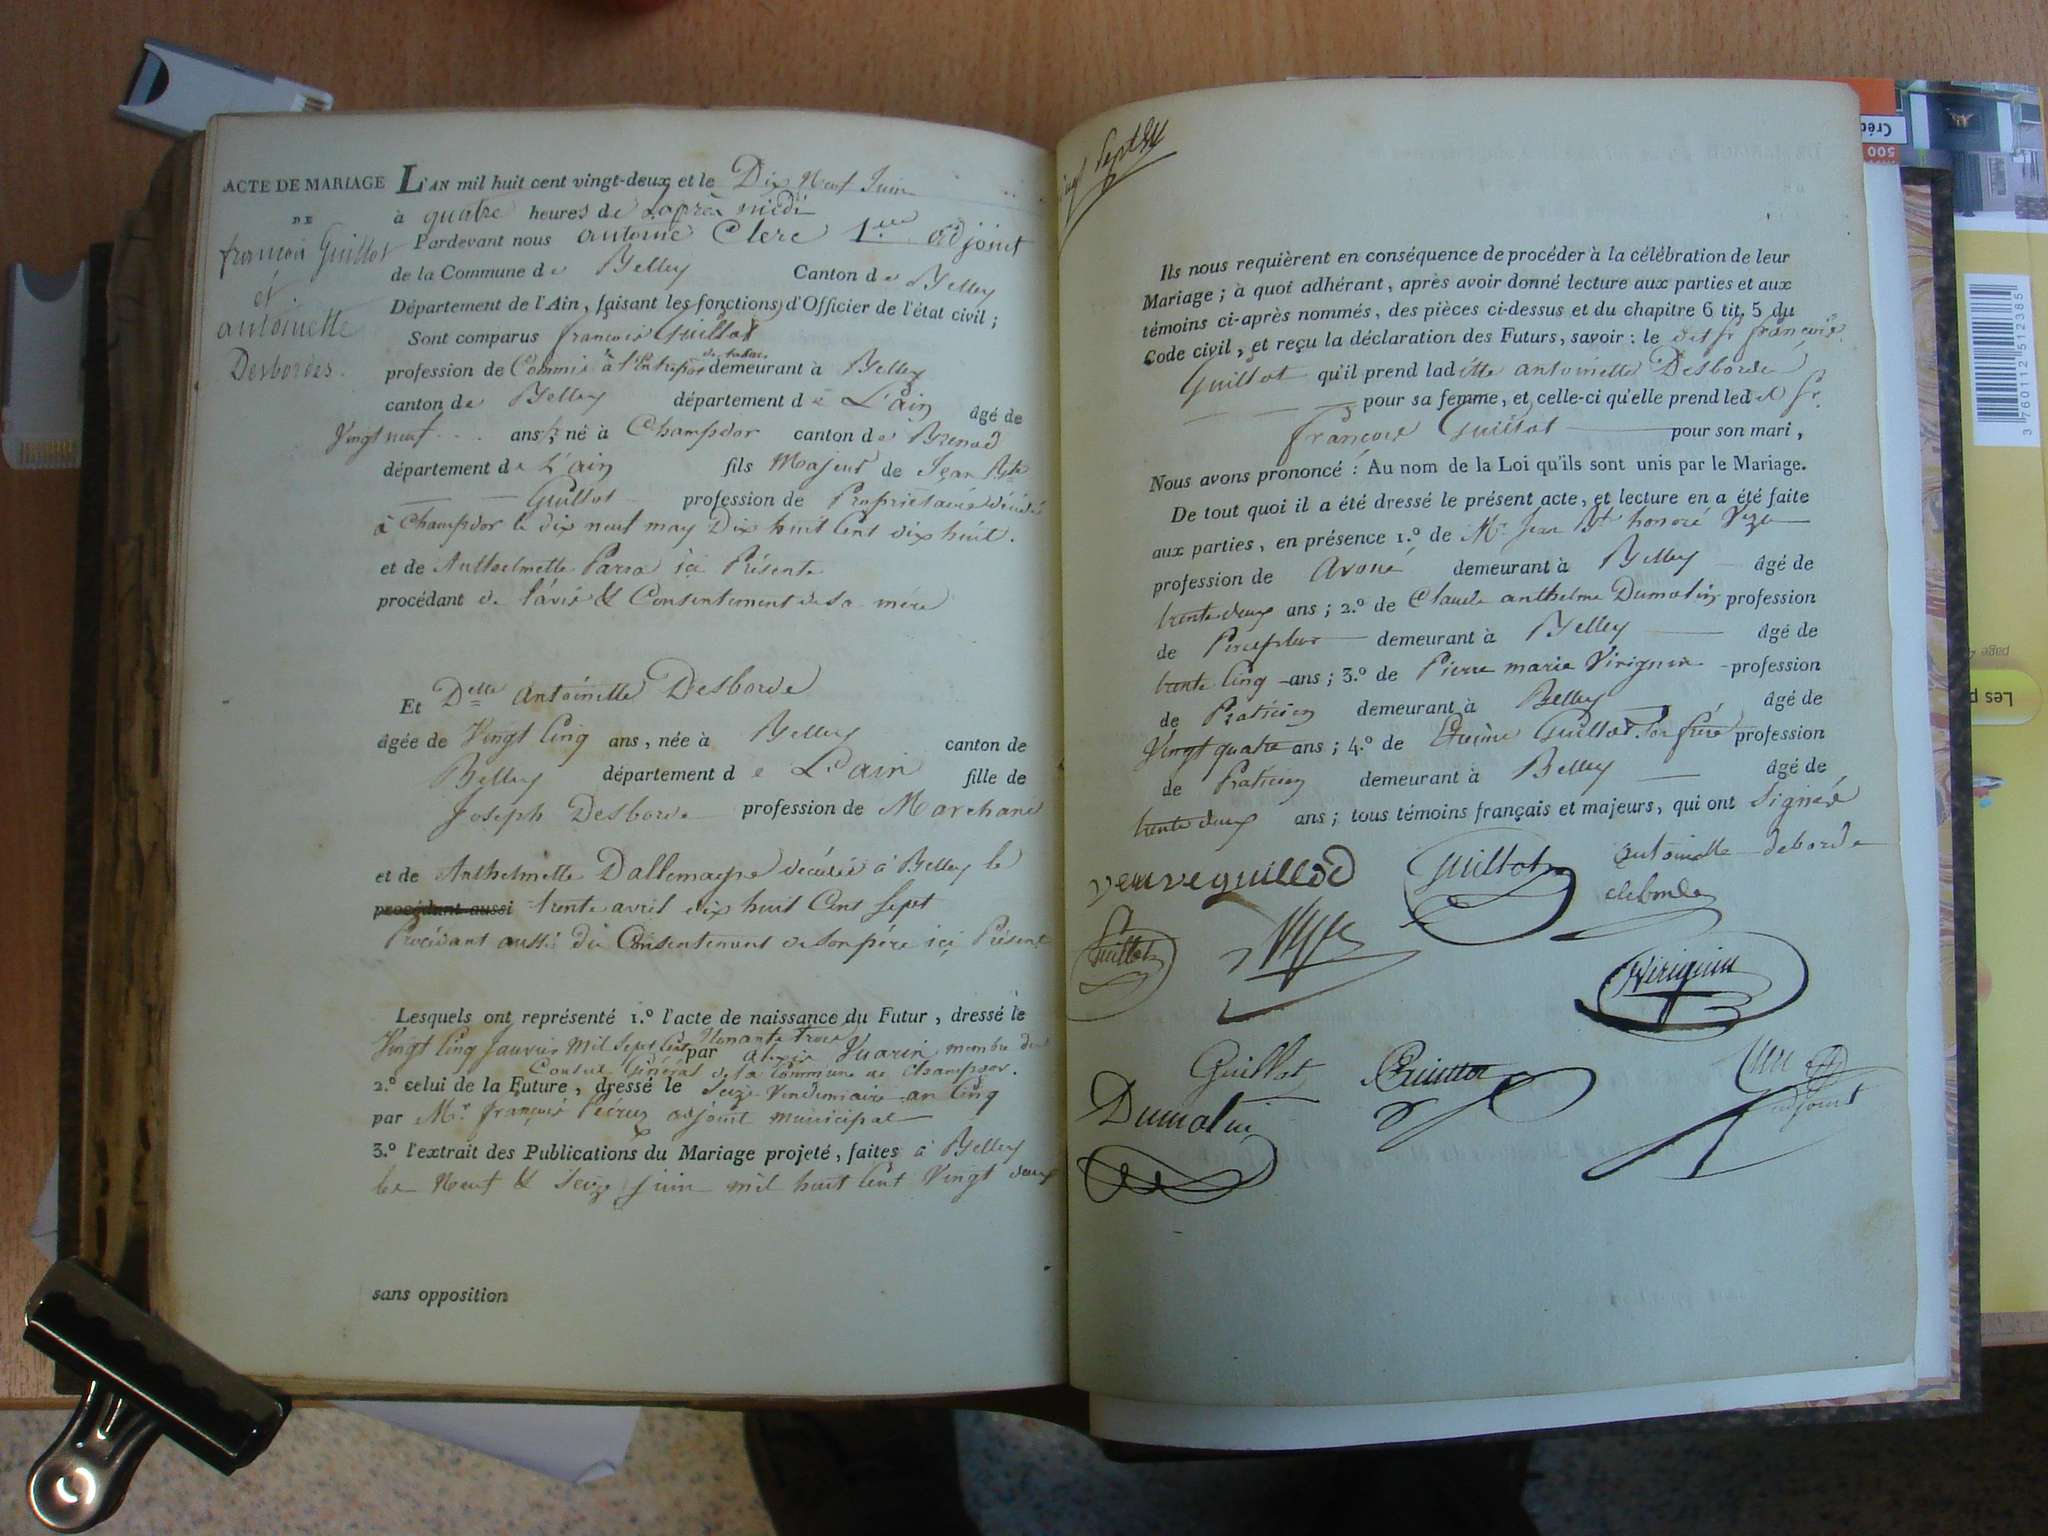 ACTE DE MARIAGE
DE
francois Guillot
et
antoinette
Desbordes.
L'AN mil huit cent vingt-deux et le Dix Neuf Juin
à quatre heures de Laprès midi
Pardevant nous antoine Clerc 1.er adjoint
de la Commune de Belley Canton de Belley
Département de l'Ain, faisant les fonctions d'Officier de l'état civil;
Sont comparus francois Guillot
profession de Commis à l'Entrepos de tabac demeurant à Belley
canton de Belley département de L'ain âgé de
Vingt neuf ans, né à Champdor canton de Brenod
département de L'ain fils Majeur de Jean Bte
Guillot profession de Propriétaire décédé
à Champdor le dix neuf may Dix huit Cent dix huit.
et de Anthelmette Parra ici Présente
procédant de l'avis & Consentement de sa mère
Et Delle Antoinette Desborde
âgée de Vingt Cinq ans, née à Belley canton de
Belley département de L'ain fille de
Joseph Desborde profession de Marchand
et de Anthelmette Dallemagne décédée à Belley le
procédant aussi trente avril dix huit Cent Sept
Procédant aussi du Consentement de son père ici Présent
Lesquels ont représenté 1.º l'acte de naissance du Futur, dressé le
Vingt Cinq Janvier Mil Sept Cent Nonante trois par alexis Juarin membre du
Conseil Général de la Commune de Champdor.
2.º celui de la Future, dressé le Seize Vendemiaire an Cinq
par Mr. françois Peéruz adjoint municipal
3.º l'extrait des Publications du Mariage projeté, faites à Belley
les Neuf & Seize Juin mil huit Cent Vingt deux
sans opposition
Ils nous requièrent en conséquence de procéder à la célébration de leur
Mariage; à quoi adhérant, après avoir donné lecture aux parties et aux
témoins ci-après nommés, des pièces ci-dessus et du chapitre 6 tit. 5 du
Code civil, et reçu la déclaration des Futurs, savoir: le dit Sr. françois
Guillot qu'il prend laditte antoinette Desborde
pour sa femme, et celle-ci qu'elle prend ledit Sr.
françois Guillot pour son mari,
Nous avons prononcé: Au nom de la Loi qu'ils sont unis par le Mariage.
De tout quoi il a été dressé le présent acte, et lecture en a été faite
aux parties, en présence 1.º de Mr. Jean Bt. honoré Vezu
profession de Avoué demeurant à Belley âgé de
trente deux ans; 2.º de Claude anthelme Dumolin profession
de Percepteur demeurant à Belley âgé de
trente Cinq ans; 3.º de Pierre marie Virignin profession
de Praticien demeurant à Belley âgé de
Vingt quatre ans; 4.º de Etienne Guillot son frère profession
de Praticien demeurant à Belley âgé de
trente deux ans; tous témoins français et majeurs, qui ont Signés
veuveguillod Guillot antoinette deborde
deborde
Guillot Virignin
Guillot
Dumolin
Clerc
adjoint
3 760112 512385
500
Créd
Les p
page